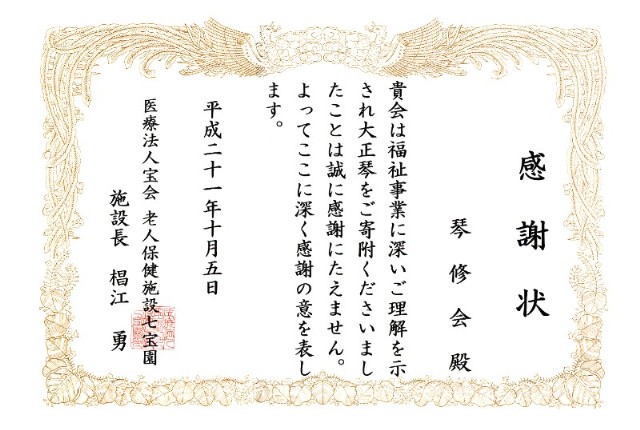 感謝状
琴修会殿
貴会は福祉事業に深いご理解を示
され大正琴をご寄附くださいまし
たことは誠に感謝にたえません。
よってここに深く感謝の意を表し
ます。
平成二十一年十月五日
医療法人宝会 老人保健施設七宝園
施設長 椙江 勇